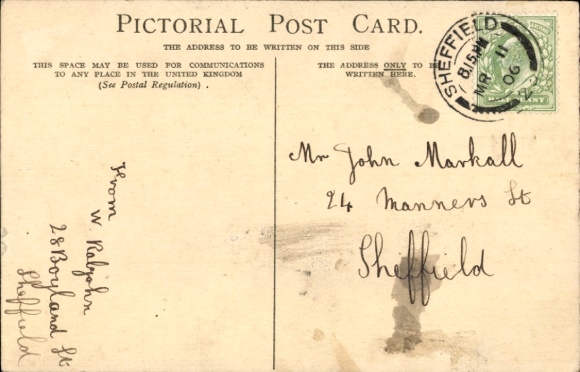 PICTORIAL POST CARD.
THE ADDRESS TO BE WRITTEN ON THIS SIDE
THIS SPACE MAY BE USED FOR COMMUNICATIONS
TO ANY PLACE IN THE UNITED KINGDOM
(See Postal Regulation).
THE ADDRESS ONLY TO BE
WRITTEN HERE.
SHEFFIELD
8.15PM
MR 11
06
Mr John Markall
24 Manners St
Sheffield
From
W. Rabjohn
28 Boyland St
Sheffield